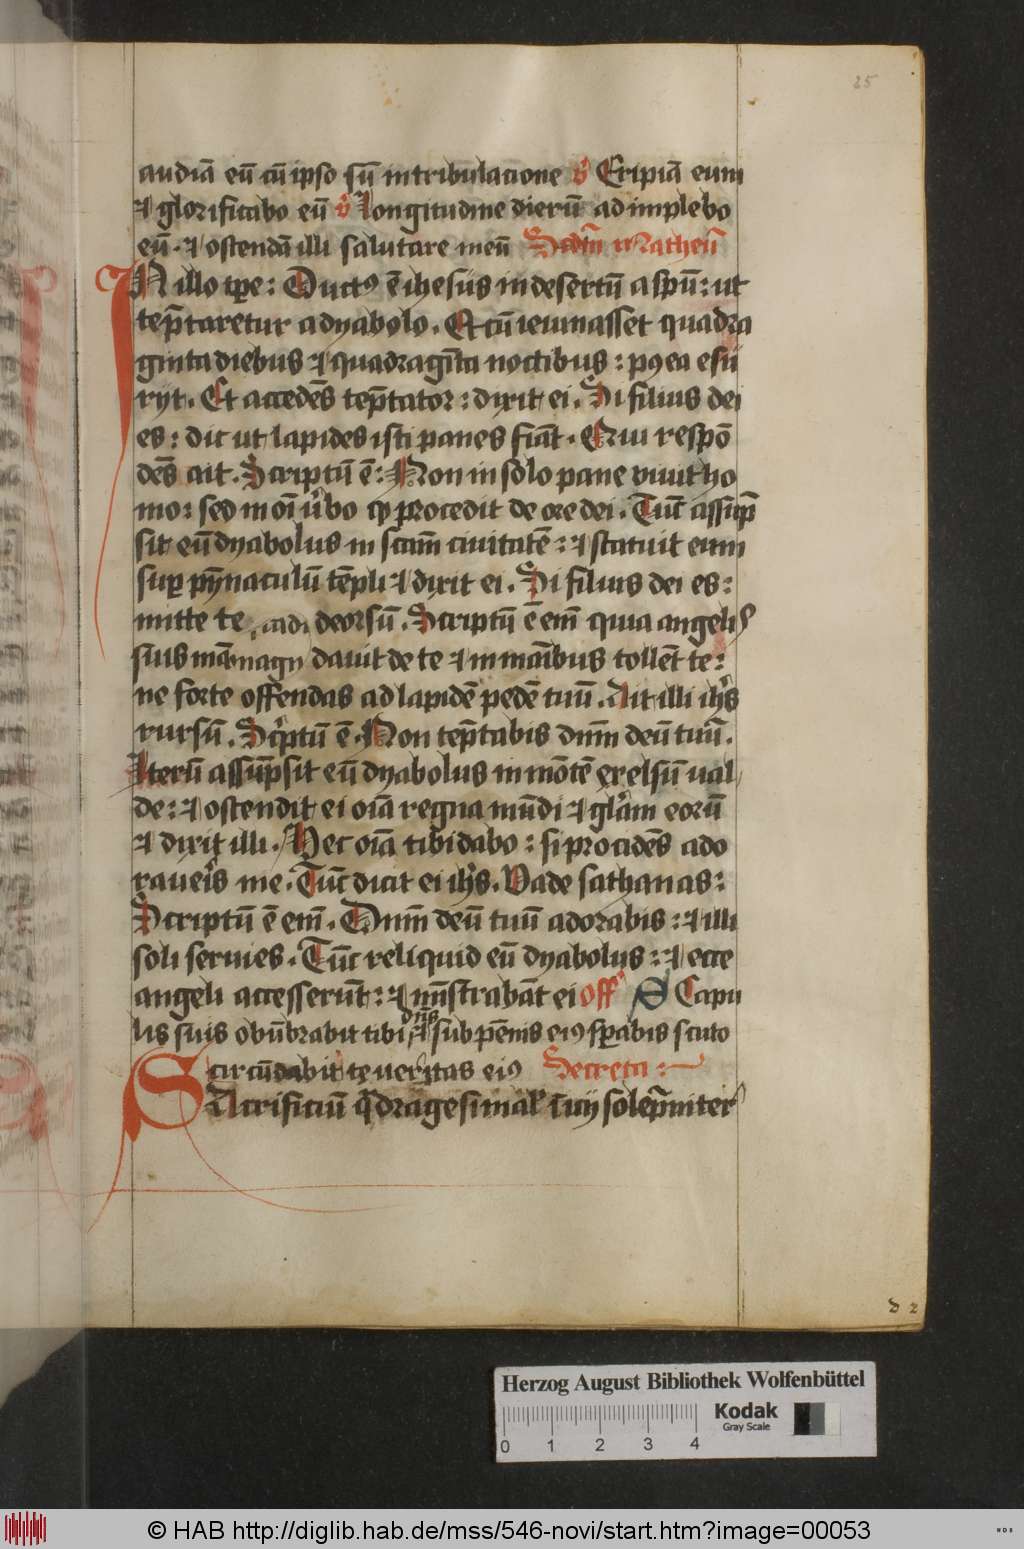 25
audiā eū cū ipso sū in tribulacione v̊ Eripiā eum
⁊ glorificabo eū v̊ Longitudine dierū adimplebo
eū · ⁊ ostendā illi salutare meū Scdm̄ Matheū
IN illo tꝑe : Duct⁹ ē ihesus in desertū a spū : ut
tep̄taretur a dyabolo . Et cū ieiunasset quadra
ginta diebus ⁊ quadragīta noctibus : p⁹ea esu
ryt . Et accedēs tep̄tator : dixit ei . Si filius dei
es : dic ut lapides isti panes fiāt . Qui respō
dēs ait . Scriptū ē : Non in solo pane viuit ho
mo : sed in oī v̓bo qḏ procedit de ore dei . Tūc assūp
sit eū dyabolus in sctam̄ ciuitatē : ⁊ statuit eum
suꝑ pȳnaculū tēpli ⁊ dixit ei . Si filius dei es :
mitte te deorsū . Scriptū ē em̄ quia angelis
suis mādauit de te ⁊ in manibus tollēt te :
ne forte offendas ad lapidē pedē tuū . Ait illi ih̓s
rursū . Sc̓ptū ē . Non tep̄tabis dnm̄ deū tuū .
Iterū assūpsit eū dyabolus in mōtē excelsū ual
de : ⁊ ostendit ei oīa regna mūdi ⁊ gl̓am eorū
⁊ dixit illi . Hec oīa tibi dabo : si procidēs ado
raueris me . Tūc dicit ei ih̓s . Vade sathanas :
Scriptū ē em̄ . Dnm̄ deū tuū adorabis : ⁊ illi
soli seruies . Tūc reliquid eū dyabolus : ⁊ ecce
angeli accesserūt : ⁊ mīstrabāt ei off̓ S Capu
lis suis obūbrabit tibi dn̄s ⁊ sub pēnis ei⁹ sꝑabis scuto
circūdabit te ueritas ei⁹ Secreta :
SAcrificiū q̄dragesimal̓ Inicij solep̄niter
d 2
Herzog August Bibliothek Wolfenbüttel
0 1 2 3 4
Kodak
Gray Scale
© HAB http://diglib.hab.de/mss/546-novi/start.htm?image=00053